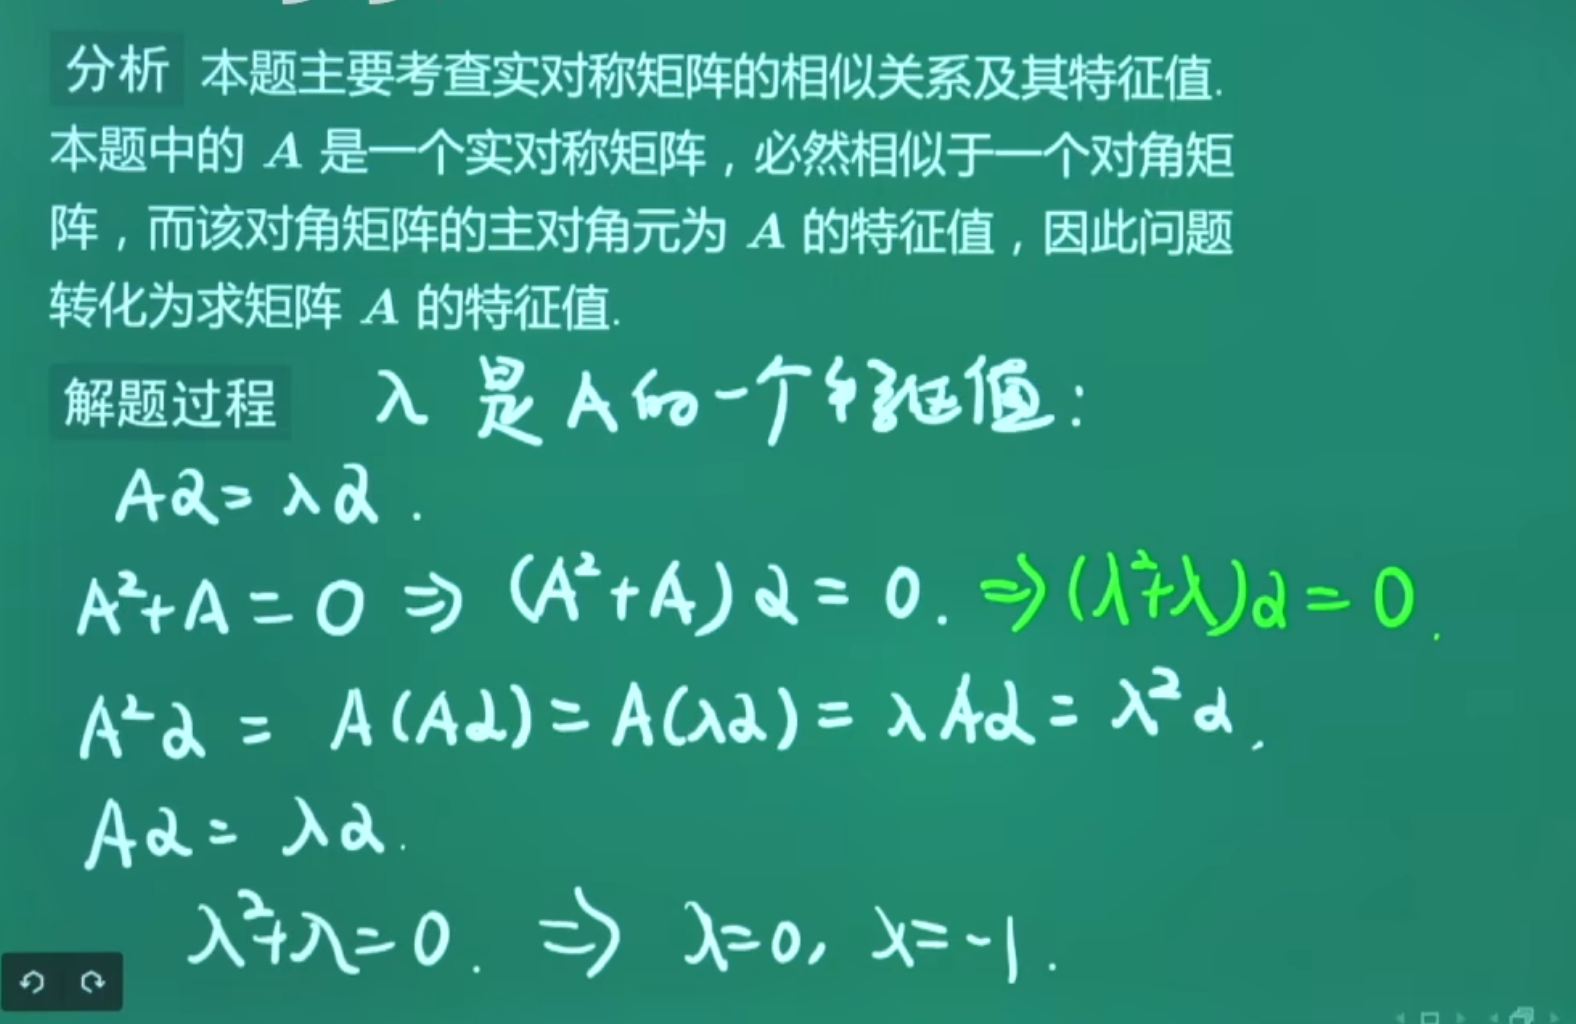 分析 本题主要考查实对称矩阵的相似关系及其特征值.
本题中的 A 是一个实对称矩阵，必然相似于一个对角矩
阵，而该对角矩阵的主对角元为 A 的特征值，因此问题
转化为求矩阵 A 的特征值.
解题过程 λ 是A的一个特征值:
Aα=λα.
A²+A=0 ⇒ (A²+A)α=0. ⇒(λ²+λ)α=0.
A²α = A(Aα)=A(λα)=λAα=λ²α.
Aα=λα.
λ²+λ=0. ⇒ λ=0, λ=-1.